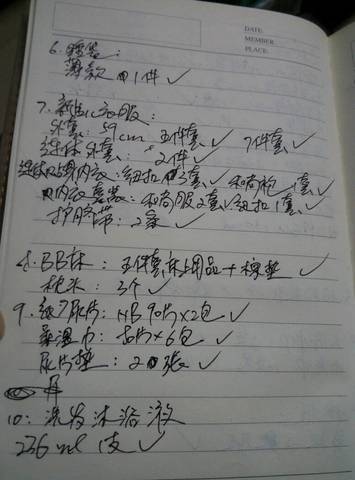 DATE:
MEMBER
PLACE:
6.睡袋:
薄款 1件 ✓
7.新生儿衣服:
外套:59cm 五件套 ✓ 7件套 ✓
连体外套:2件 ✓
连体内衣:纽扣 3套 ✓ 和尚袍 1套 ✓
内衣套装:和尚服2套 ✓ 纽扣1套 ✓
护脐带:2条 ✓
8.BB床:五件套床上用品+棕垫 ✓
枕头 3个 ✓
9.纸尿片:NB 90片×2包 ✓
湿巾:片×6包 ✓
尿片垫:20张 ✓
10:洗发沐浴液
236ml 1支 ✓